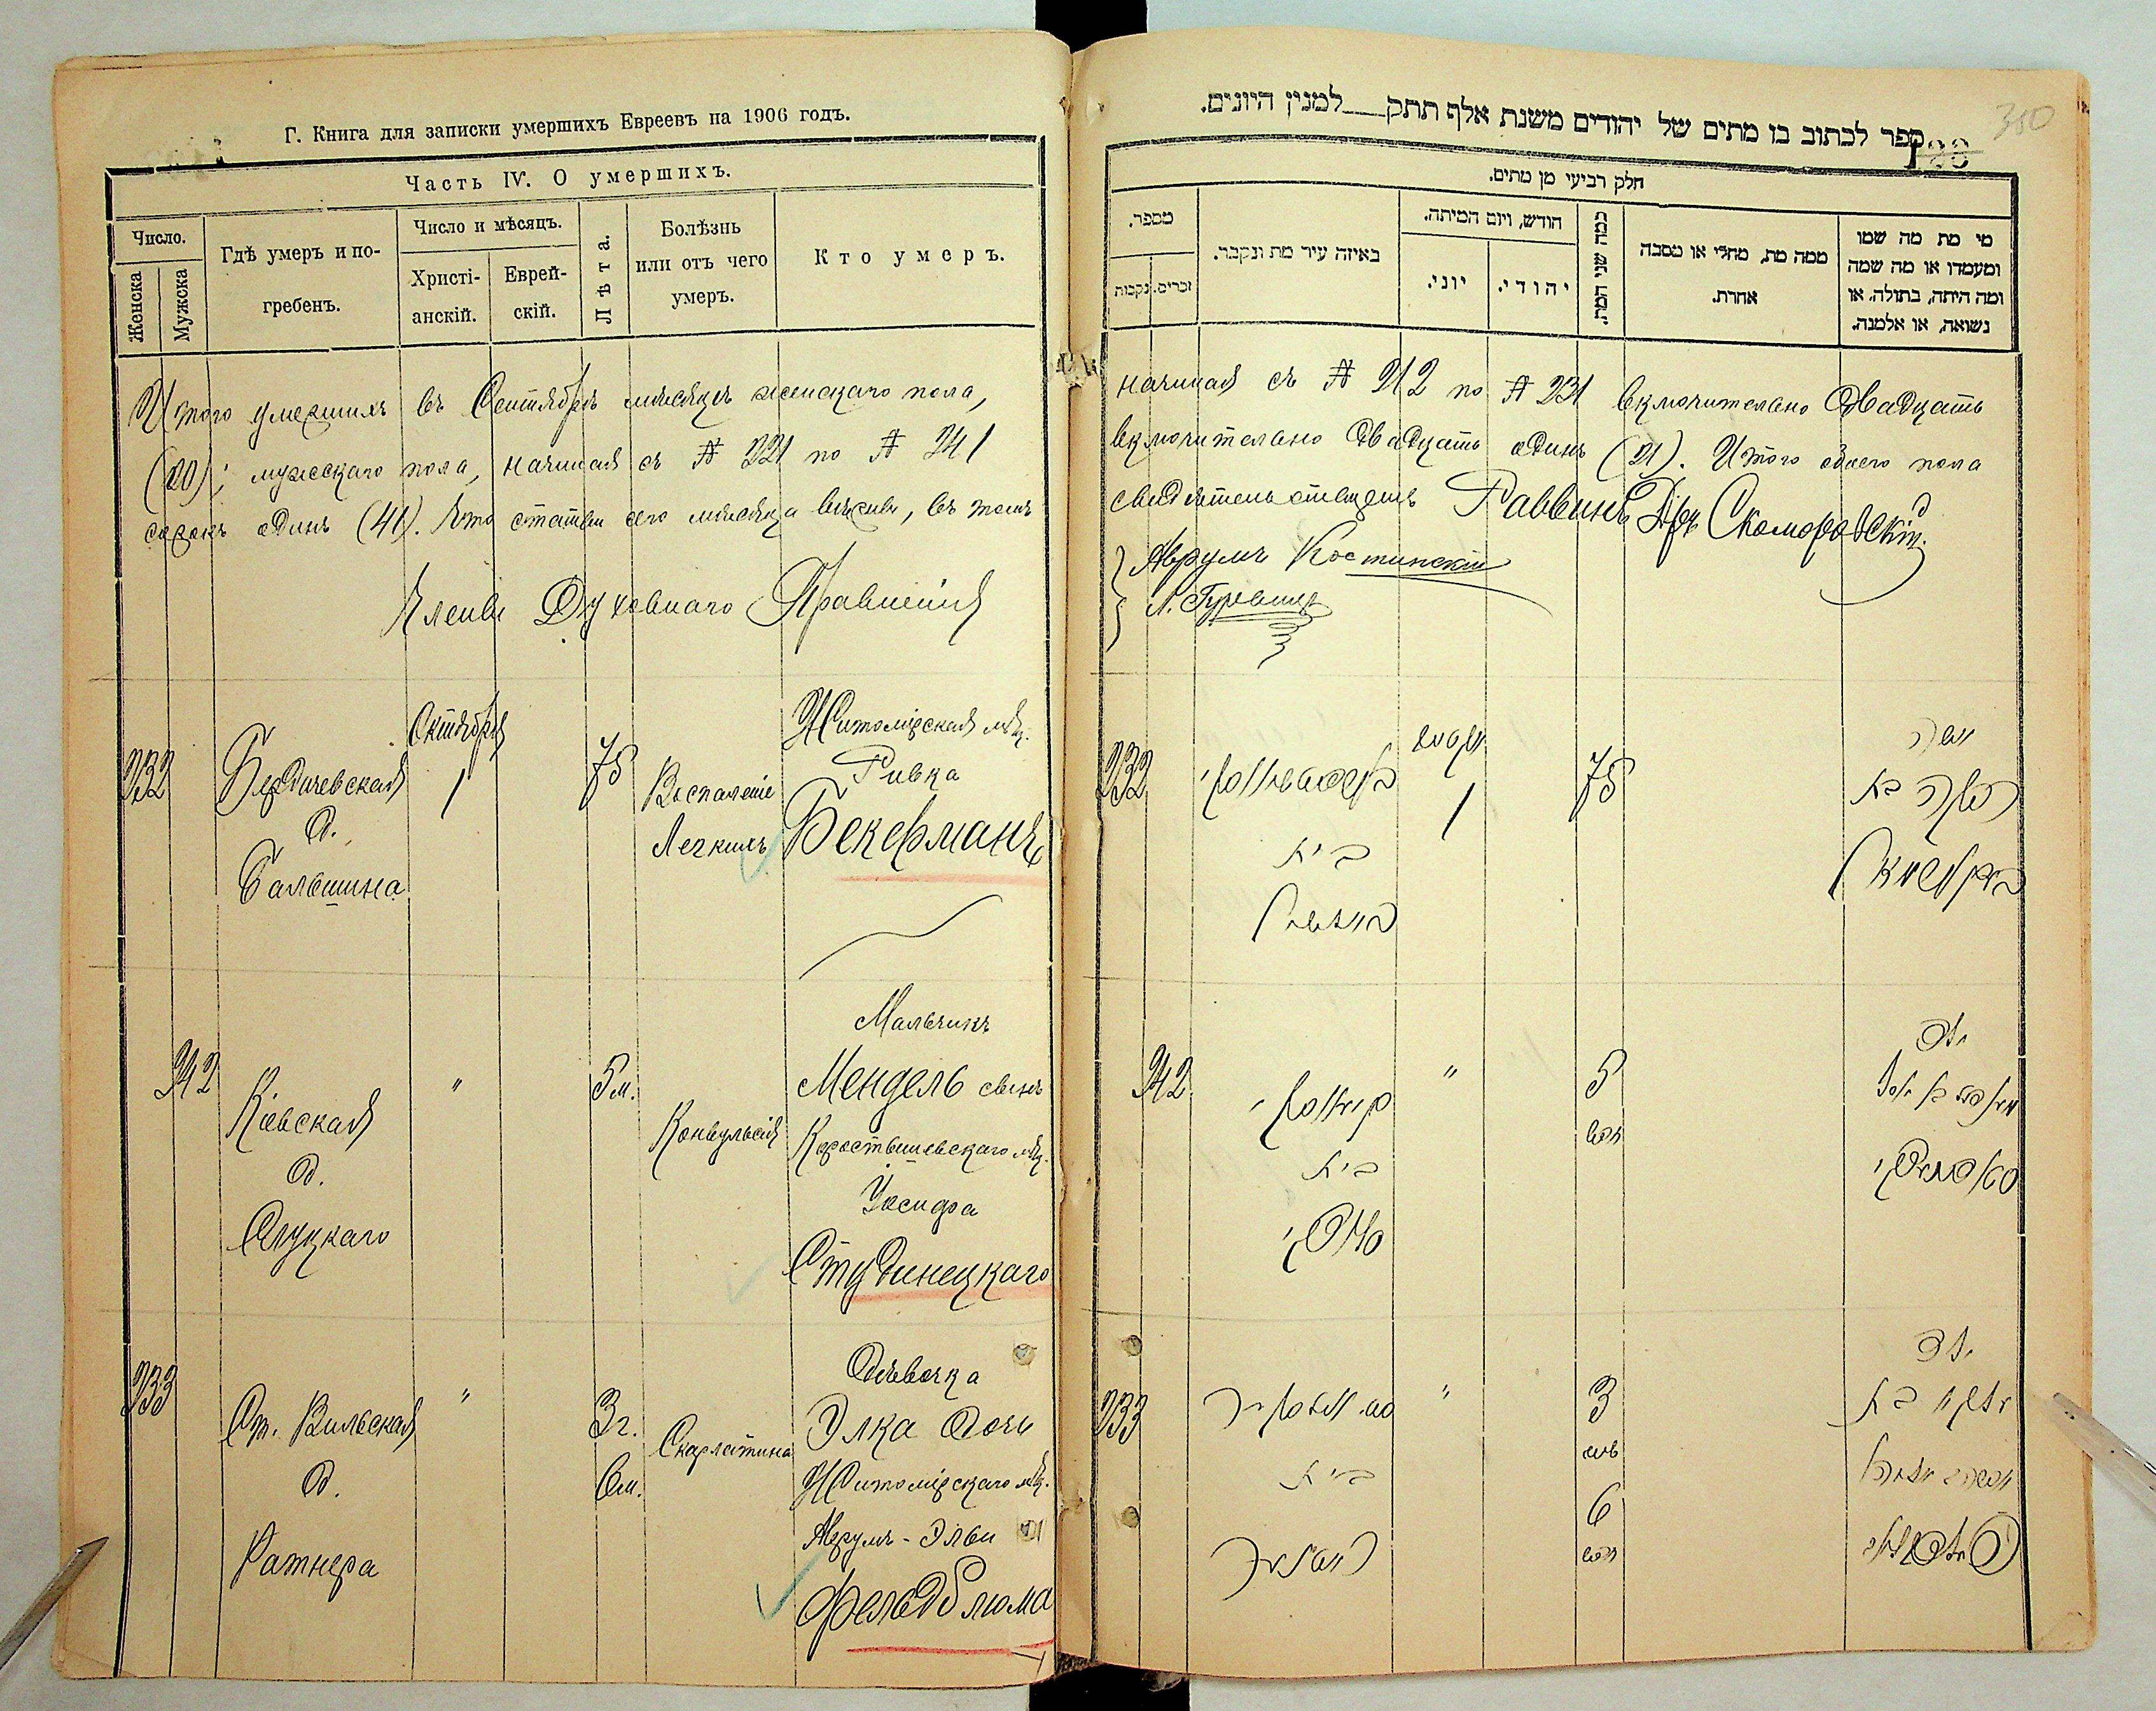 Г. Книга для записки умершихъ Евреевъ на 1906 годъ.
Часть IV. О умершихъ.
Число.
Женска
Мужска
Гдѣ умеръ и по-
гребенъ.
Число и мѣсяцъ.
Христі-
анскій.
Еврей-
скій.
Лѣта.
Болѣзнь
или отъ чего
умеръ.
Кто умеръ.
Итого умершихъ въ Сентябрѣ мѣсяцѣ женскаго пола,
(20); мужескаго пола, начиная съ № 221 по № 241
сорокъ одинъ (41). Что статьи сего мѣсяца вѣрны, въ томъ
Члены Духовнаго Правленія
232
Бердичевская
д.
Бальшина
Октября
1
75
Воспаленіе
Легкихъ
Житомірская мѣщ.
Ривка
Бекерманъ
242
Кіевская
д.
Слуцкаго
"
5 м.
Конвульсія
Мальчикъ
Мендель сынъ
Коростышевскаго мѣщ.
Іосифа
Студинецкаго
233
Ст. Вильская
д.
Ратнера
"
3 г.
6 м.
Скарлатина
Дѣвочка
Элка дочь
Житомірскаго мѣщ.
Аврумъ-Эльи
Фельдблюма
ספר לכתוב בו מתים של יהודים משנת אלף תתק___למנין היונים.
310
חלק רביעי מן מתים.
מספר.
זכרים.
נקבות
באיזה עיר מת ונקבר.
חודש, ויום המיתה.
יוני.
יהודי.
כמה שני המת.
ממה מת, מחלי או מסבה
אחרת.
מי מת מה שמו
ומעמדו או מה שמה
ומה היתה, בתולה, או
נשואה, או אלמנה.
начиная съ № 212 по № 231 включительно двадцать
включительно двадцать одинъ (21). Итого обоего пола
свидѣтельствуемъ Раввинъ Д-ръ Скоморовскій.
Аврумъ Костинскій
Л. Гуревичъ
232
בית
1
75
242
בית
"
5
ילד
233
בית
"
3
6
ילדה